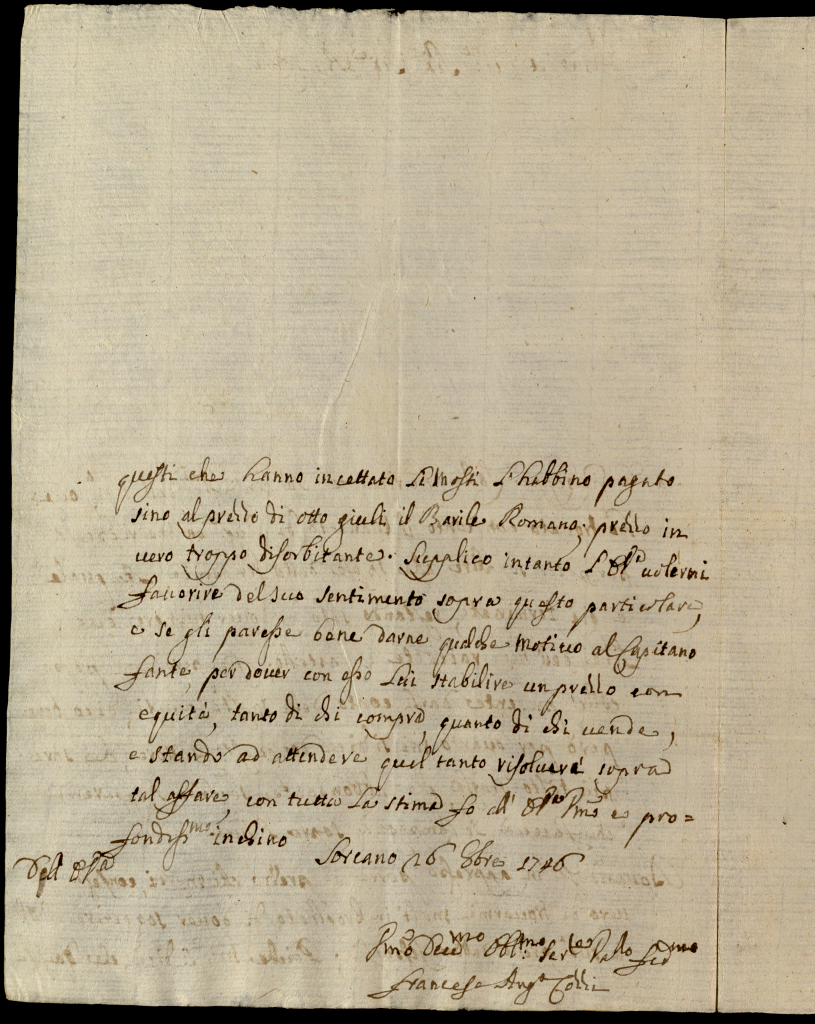 questi che hanno incettato li Mosti l'habbino pagato
sino al prezzo di otto giuli il Barile Romano, prezzo in
vero troppo disorbitante. Supplico intanto volermi
favorire del suo sentimento sopra questo particolare,
e se gli paresse bene darne qualche motivo al Capitano
fante, per dover con esso Lui stabilire un prezzo con
equità, tanto di chi compra, quanto di chi vende,
e stando ad attendere quel tanto risolverà sopra
tal affare, con tutta la stima fo all' pro=
fondissmo inchino
Sorcano 26 8bre 1746
Dell'
Francesco Ango